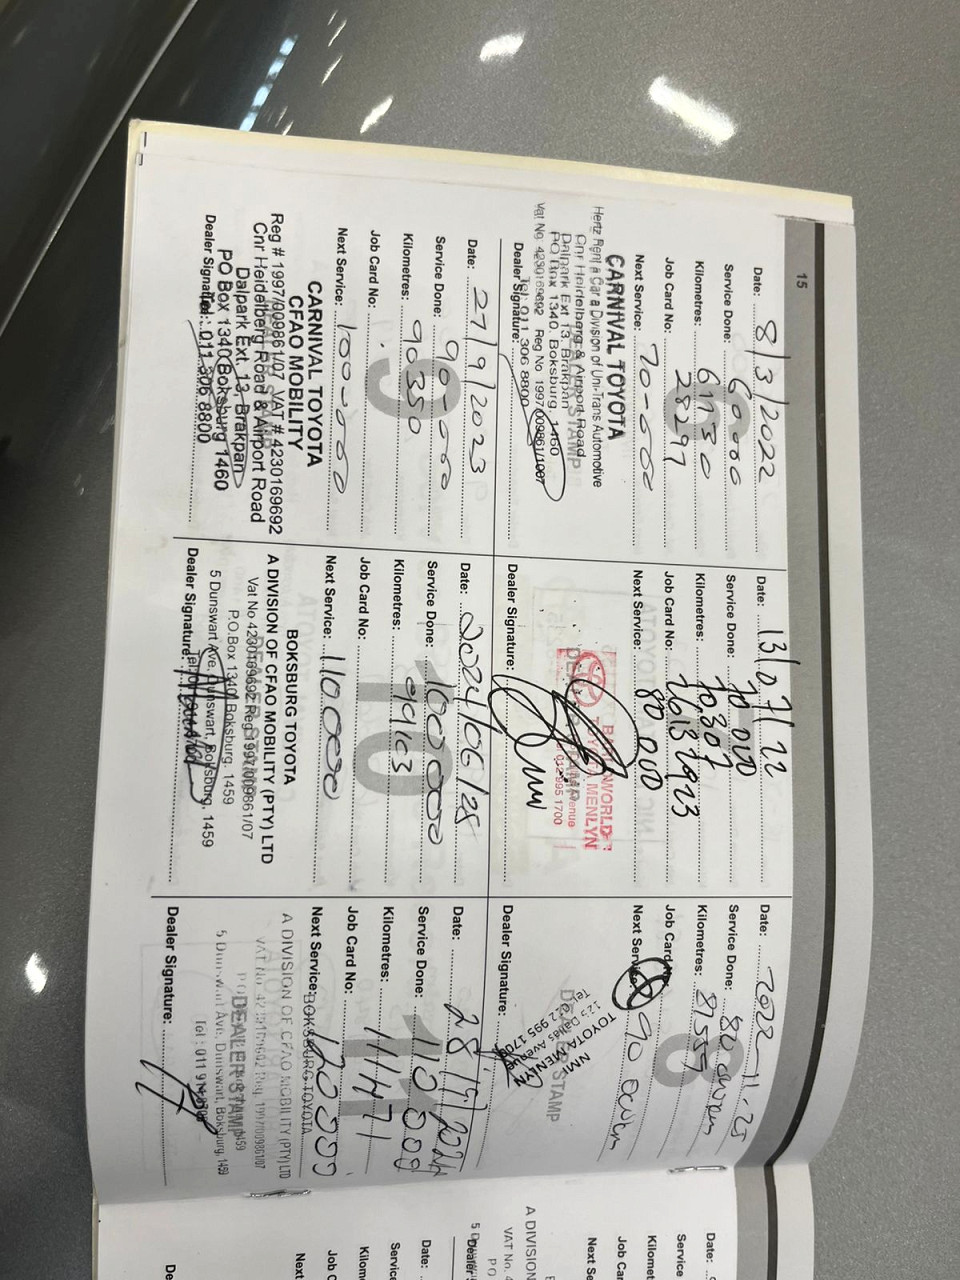 15
Date: 8/3/2022
Service Done: 60000
Kilometres: 61130
Job Card No: 28297
Next Service: 70-000
Hertz Rent a Car a Division of Uni-Trans Automotive
CARNIVAL TOYOTA
Cnr Heidelberg & Airport Road
Dalpark Ext 13, Brakpan
PO Box 1340, Boksburg, 1460
Vat No 4230169692 Reg No 1997/009861/1007
Tel: 011 306 8800
Dealer Signature:
Date: 13/07/22
Service Done: 70 000
Kilometres: 70307
Job Card No:
Next Service: 80 000
TOYOTA MENLYN
012 995 1700
Dealer Signature:
8
Date: 2022-11-25
Service Done: 80
Kilometres: 81557
Job Card No:
Next Service: 90
NMI
TOYOTA MENLYN
125 Dallas Avenue
Tel: 012 995 1700
DEALER STAMP
Dealer Signature:
9
Date: 27/9/2023
Service Done: 90-000
Kilometres: 90350
Job Card No:
Next Service: 100-000
CARNIVAL TOYOTA
CFAO MOBILITY
Reg # 1997/009861/07 VAT # 4230169692
Cnr Heidelberg Road & Airport Road
Dalpark Ext. 13, Brakpan
PO Box 1340 Boksburg 1460
Tel: 011 306 8800
Dealer Signature:
10
Date: 2024/06/25
Service Done: 100000
Kilometres: 99163
Job Card No:
Next Service: 110000
BOKSBURG TOYOTA
A DIVISION OF CFAO MOBILITY (PTY) LTD
Vat No 4230169692 Reg 1997/009861/07
P.O.Box 1340 Boksburg. 1459
5 Dunswart Ave, Dunswart, Boksburg, 1459
Dealer Signature:
11
Date: 28/11/2024
Service Done: 110 000
Kilometres: 111471
Job Card No:
Next Service: 120 000
BOKSBURG TOYOTA
A DIVISION OF CFAO MOBILITY (PTY) LTD
DEALER STAMP
5 Dunswart Ave, Dunswart, Boksburg, 1459
Dealer Signature:
Date:
Service
Kilomet
Job
Next Se
A DIVISION
VAT No. 4
Date:
Service
Kilom
Job C
Next
De